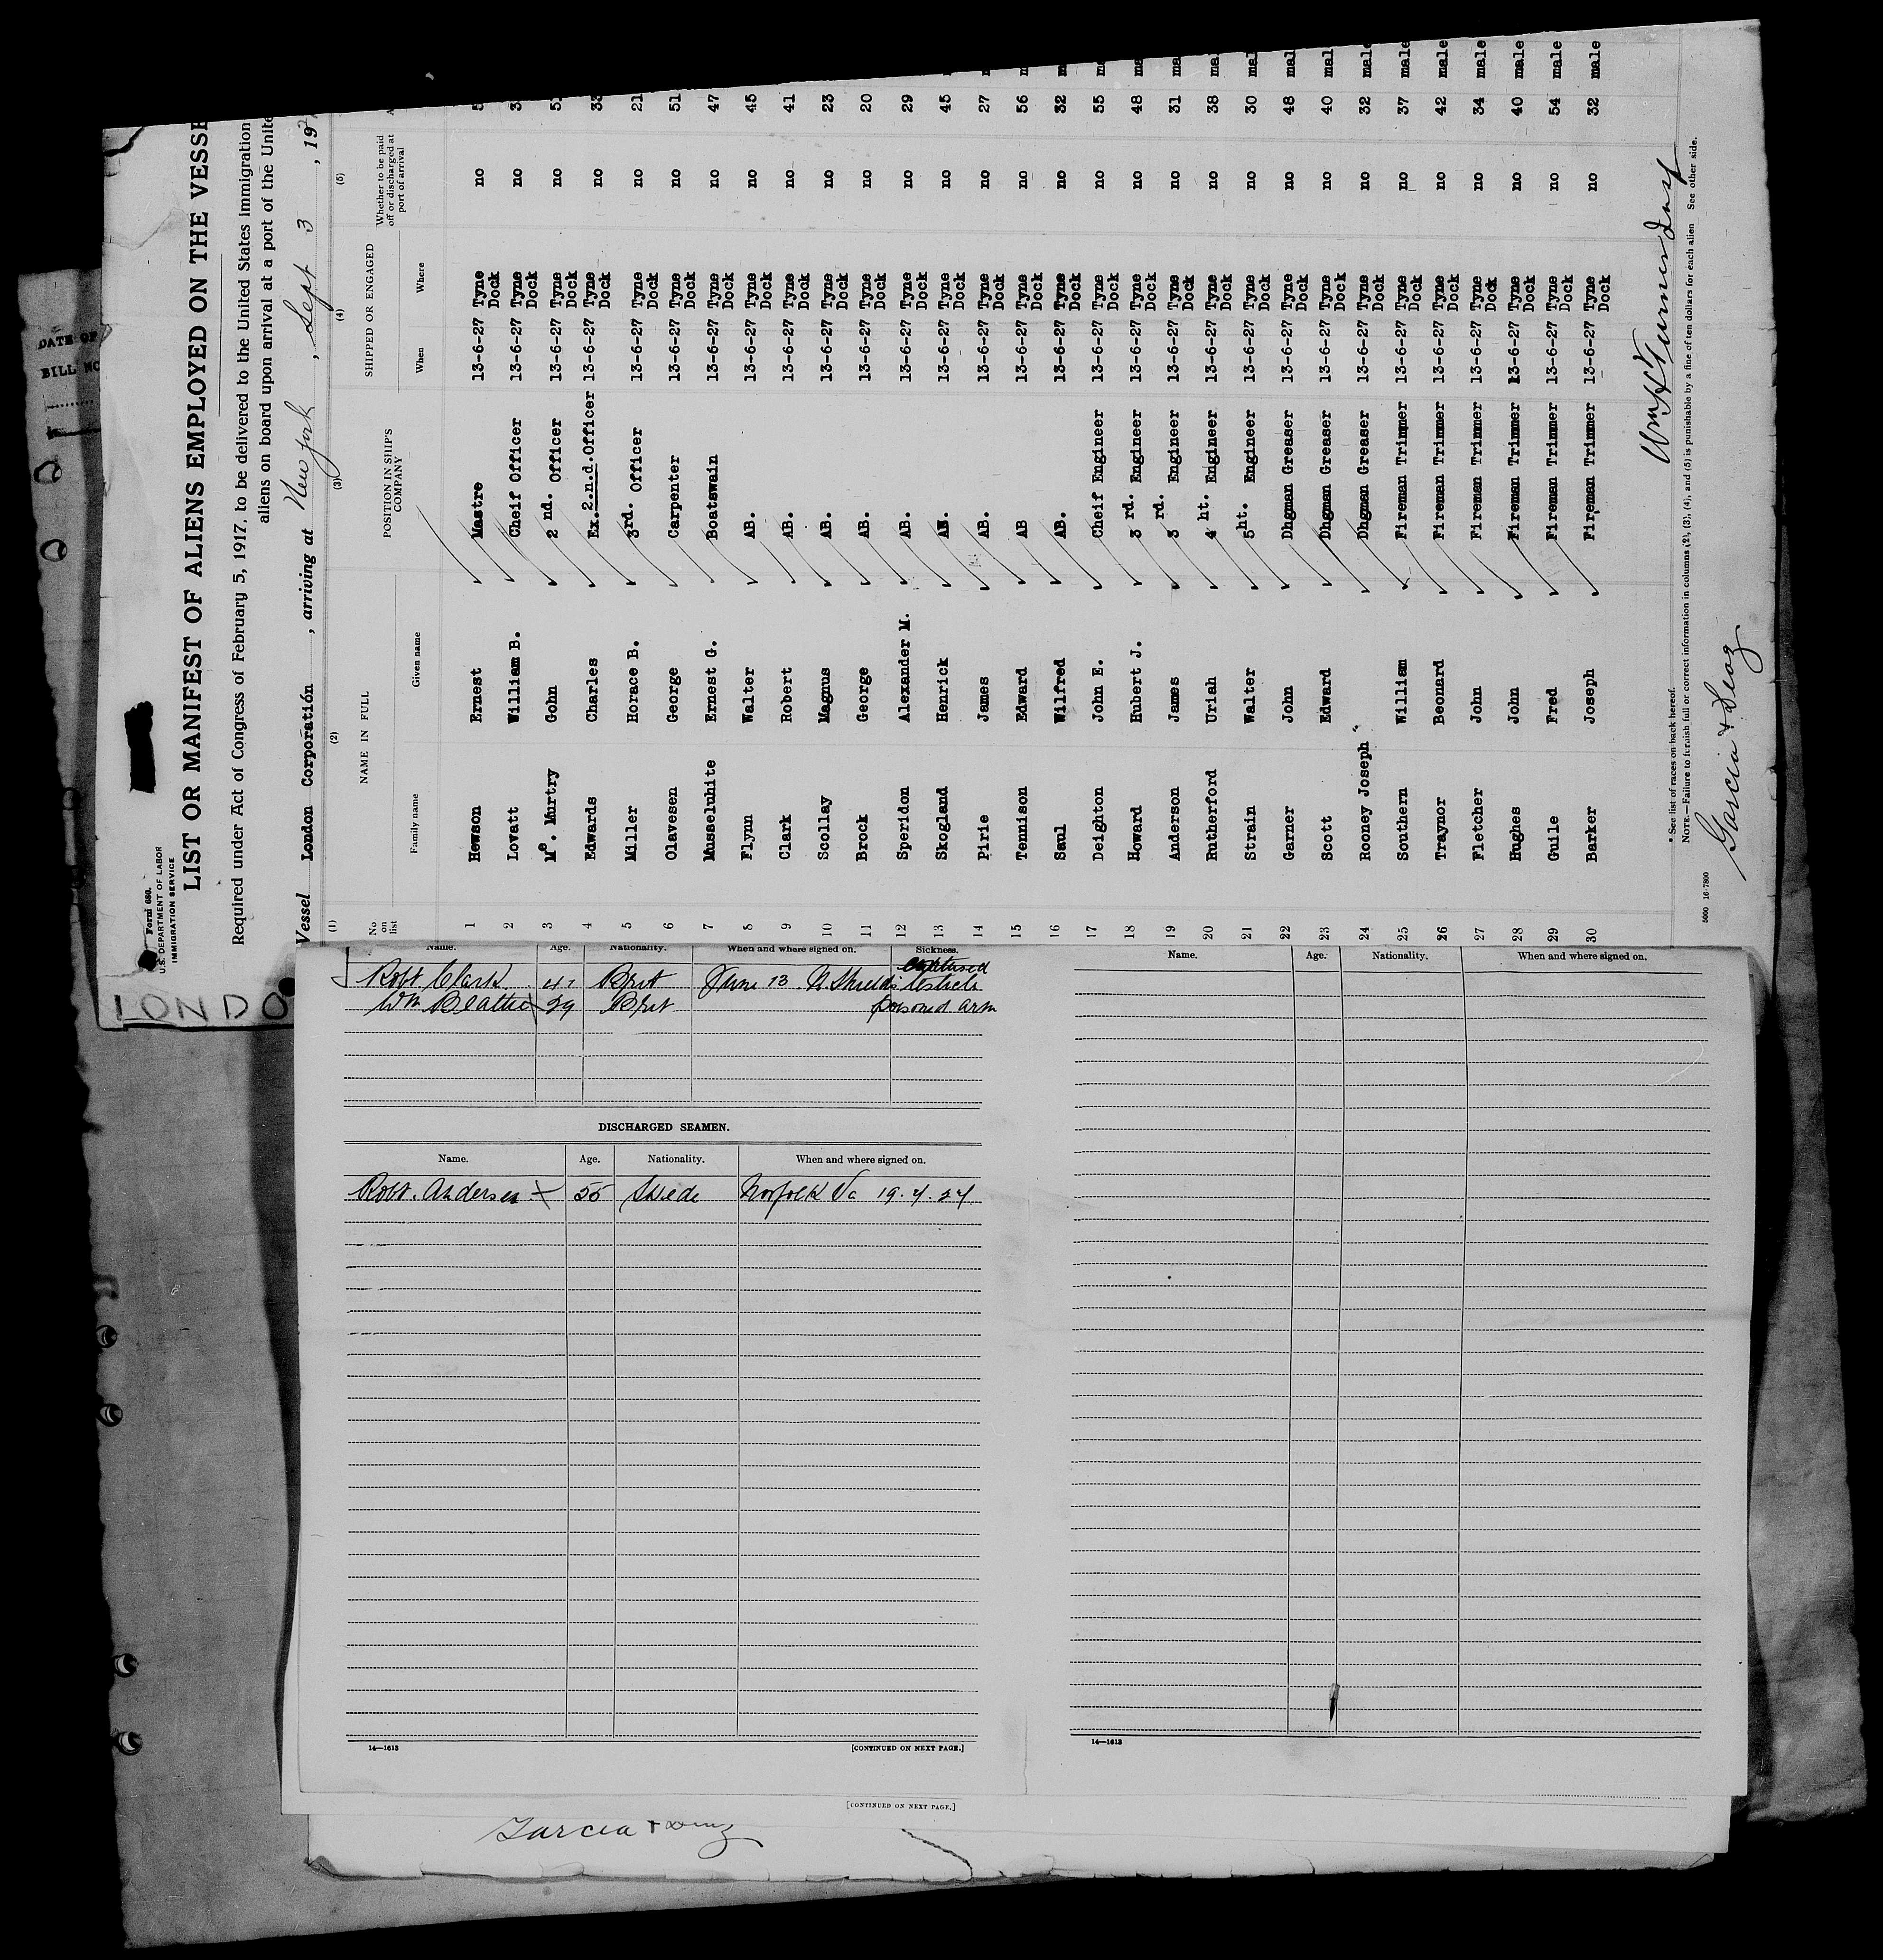 Form 680.
U.S. DEPARTMENT OF LABOR
IMMIGRATION SERVICE
LIST OR MANIFEST OF ALIENS EMPLOYED ON THE VESSE
Required under Act of Congress of February 5, 1917, to be delivered to the United States immigration
aliens on board upon arrival at a port of the Unite
Vessel London Corporatión, arriving at New York, Sept 3, 192
(1) (2) (3) (4) (5)
No on list
NAME IN FULL
Family name Given name
POSITION IN SHIP'S COMPANY
SHIPPED OR ENGAGED
When Where
Whether to be paid off or discharged at port of arrival
A
1 Hewson Ernest Mastre 13-6-27 Tyne Dock no 5
2 Lovatt William B. Cheif Officer 13-6-27 Tyne Dock no 3
3 Mc. Murtry Gohn 2 nd. Officer 13-6-27 Tyne Dock no 51
4 Edwards Charles Ex.2.n.d.Officer 13-6-27 Tyne Dock no 33
5 Miller Horace B. 3rd. Officer 13-6-27 Tyne Dock no 21
6 Olavesen George Carpenter 13-6-27 Tyne Dock no 51
7 Musseluhite Ernest G. Boatswain 13-6-27 Tyne Dock no 47
8 Flynn Walter AB. 13-6-27 Tyne Dock no 45
9 Clark Robert AB. 13-6-27 Tyne Dock no 41
10 Scollay Magnus AB. 13-6-27 Tyne Dock no 23
11 Brock George AB. 13-6-27 Tyne Dock no 20
12 Speridon Alexander M. AB. 13-6-27 Tyne Dock no 29
13 Skogland Henrick AB. 13-6-27 Tyne Dock no 45
14 Pirie James AB. 13-6-27 Tyne Dock no 27
15 Tennison Edward AB 13-6-27 Tyne Dock no 56
16 Saul Wilfred AB. 13-6-27 Tyne Dock no 32
17 Deighton John E. Cheif Engineer 13-6-27 Tyne Dock no 55 ma
18 Howard Hubert J. 3 rd. Engineer 13-6-27 Tyne Dock no 48 ma
19 Anderson James 3 rd. Engineer 13-6-27 Tyne Dock no 31 ma
20 Rutherford Uriah 4 ht. Engineer 13-6-27 Tyne Dock no 38 mal
21 Strain Walter 5ht. Engineer 13-6-27 Tyne Dock no 30 mal
22 Garner John Dhgman Greaser 13-6-27 Tyne Dock no 48 mal
23 Scott Edward Dhgman Greaser 13-6-27 Tyne Dock no 40 mal
24 Rooney Joseph Dhgman Greaser 13-6-27 Tyne Dock no 32 male
25 Southern William Fireman Trimmer 13-6-27 Tyne Dock no 37 male
26 Traynor Beonard Fireman Trimmer 13-6-27 Tyne Dock no 42 male
27 Fletcher John Fireman Trimmer 13-6-27 Tyne Dock no 34 male
28 Hughes John Fireman Trimmer 13-6-27 Tyne Dock no 40 male
29 Guile Fred Fireman Trimmer 13-6-27 Tyne Dock no 54 male
30 Barker Joseph Fireman Trimmer 13-6-27 Tyne Dock no 32 male
* See list of races on back hereof.
NOTE.—Failure to furnish full or correct information in columns (2), (3), (4), and (5) is punishable by a fine of ten dollars for each alien See other side.
5000 16-7800
Garcia & Diaz
DATE OF
BILL NO
LONDO
Name. Age. Nationality. When and where signed on. Sickness.
Robt Clark 41 Brit June 13 N. Shields testicle
Wm Beattie 29 Brit poisoned arm
DISCHARGED SEAMEN.
Name. Age. Nationality. When and where signed on.
Robt. Andersen 55 Swede Norfolk Va 19.7.27
14—1613
[CONTINUED ON NEXT PAGE.]
Name. Age. Nationality. When and where signed on.
14—1613
[CONTINUED ON NEXT PAGE.]
Garcia + Diaz